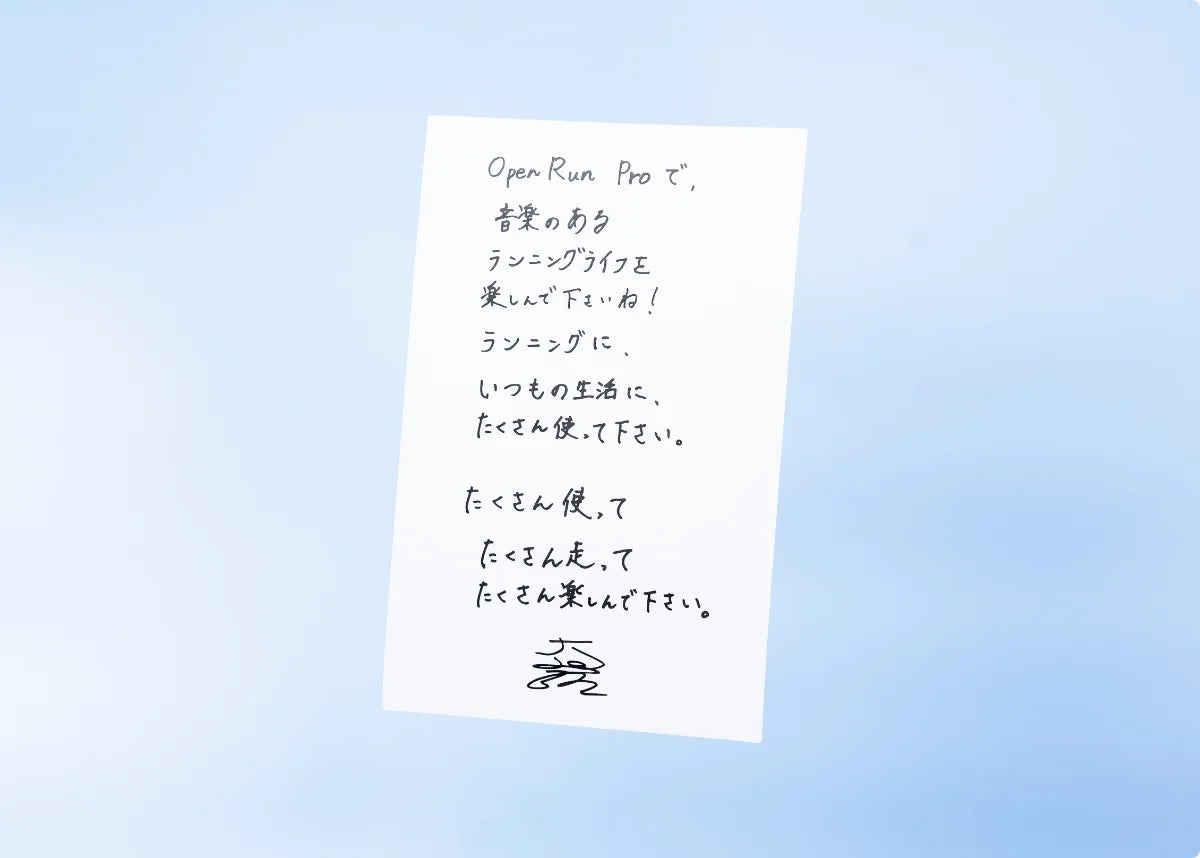 OpenRun Proで、
音楽のある
ランニングライフを
楽しんで下さいね！
ランニングに、
いつもの生活に、
たくさん使って下さい。
たくさん使って
たくさん走って
たくさん楽しんで下さい。